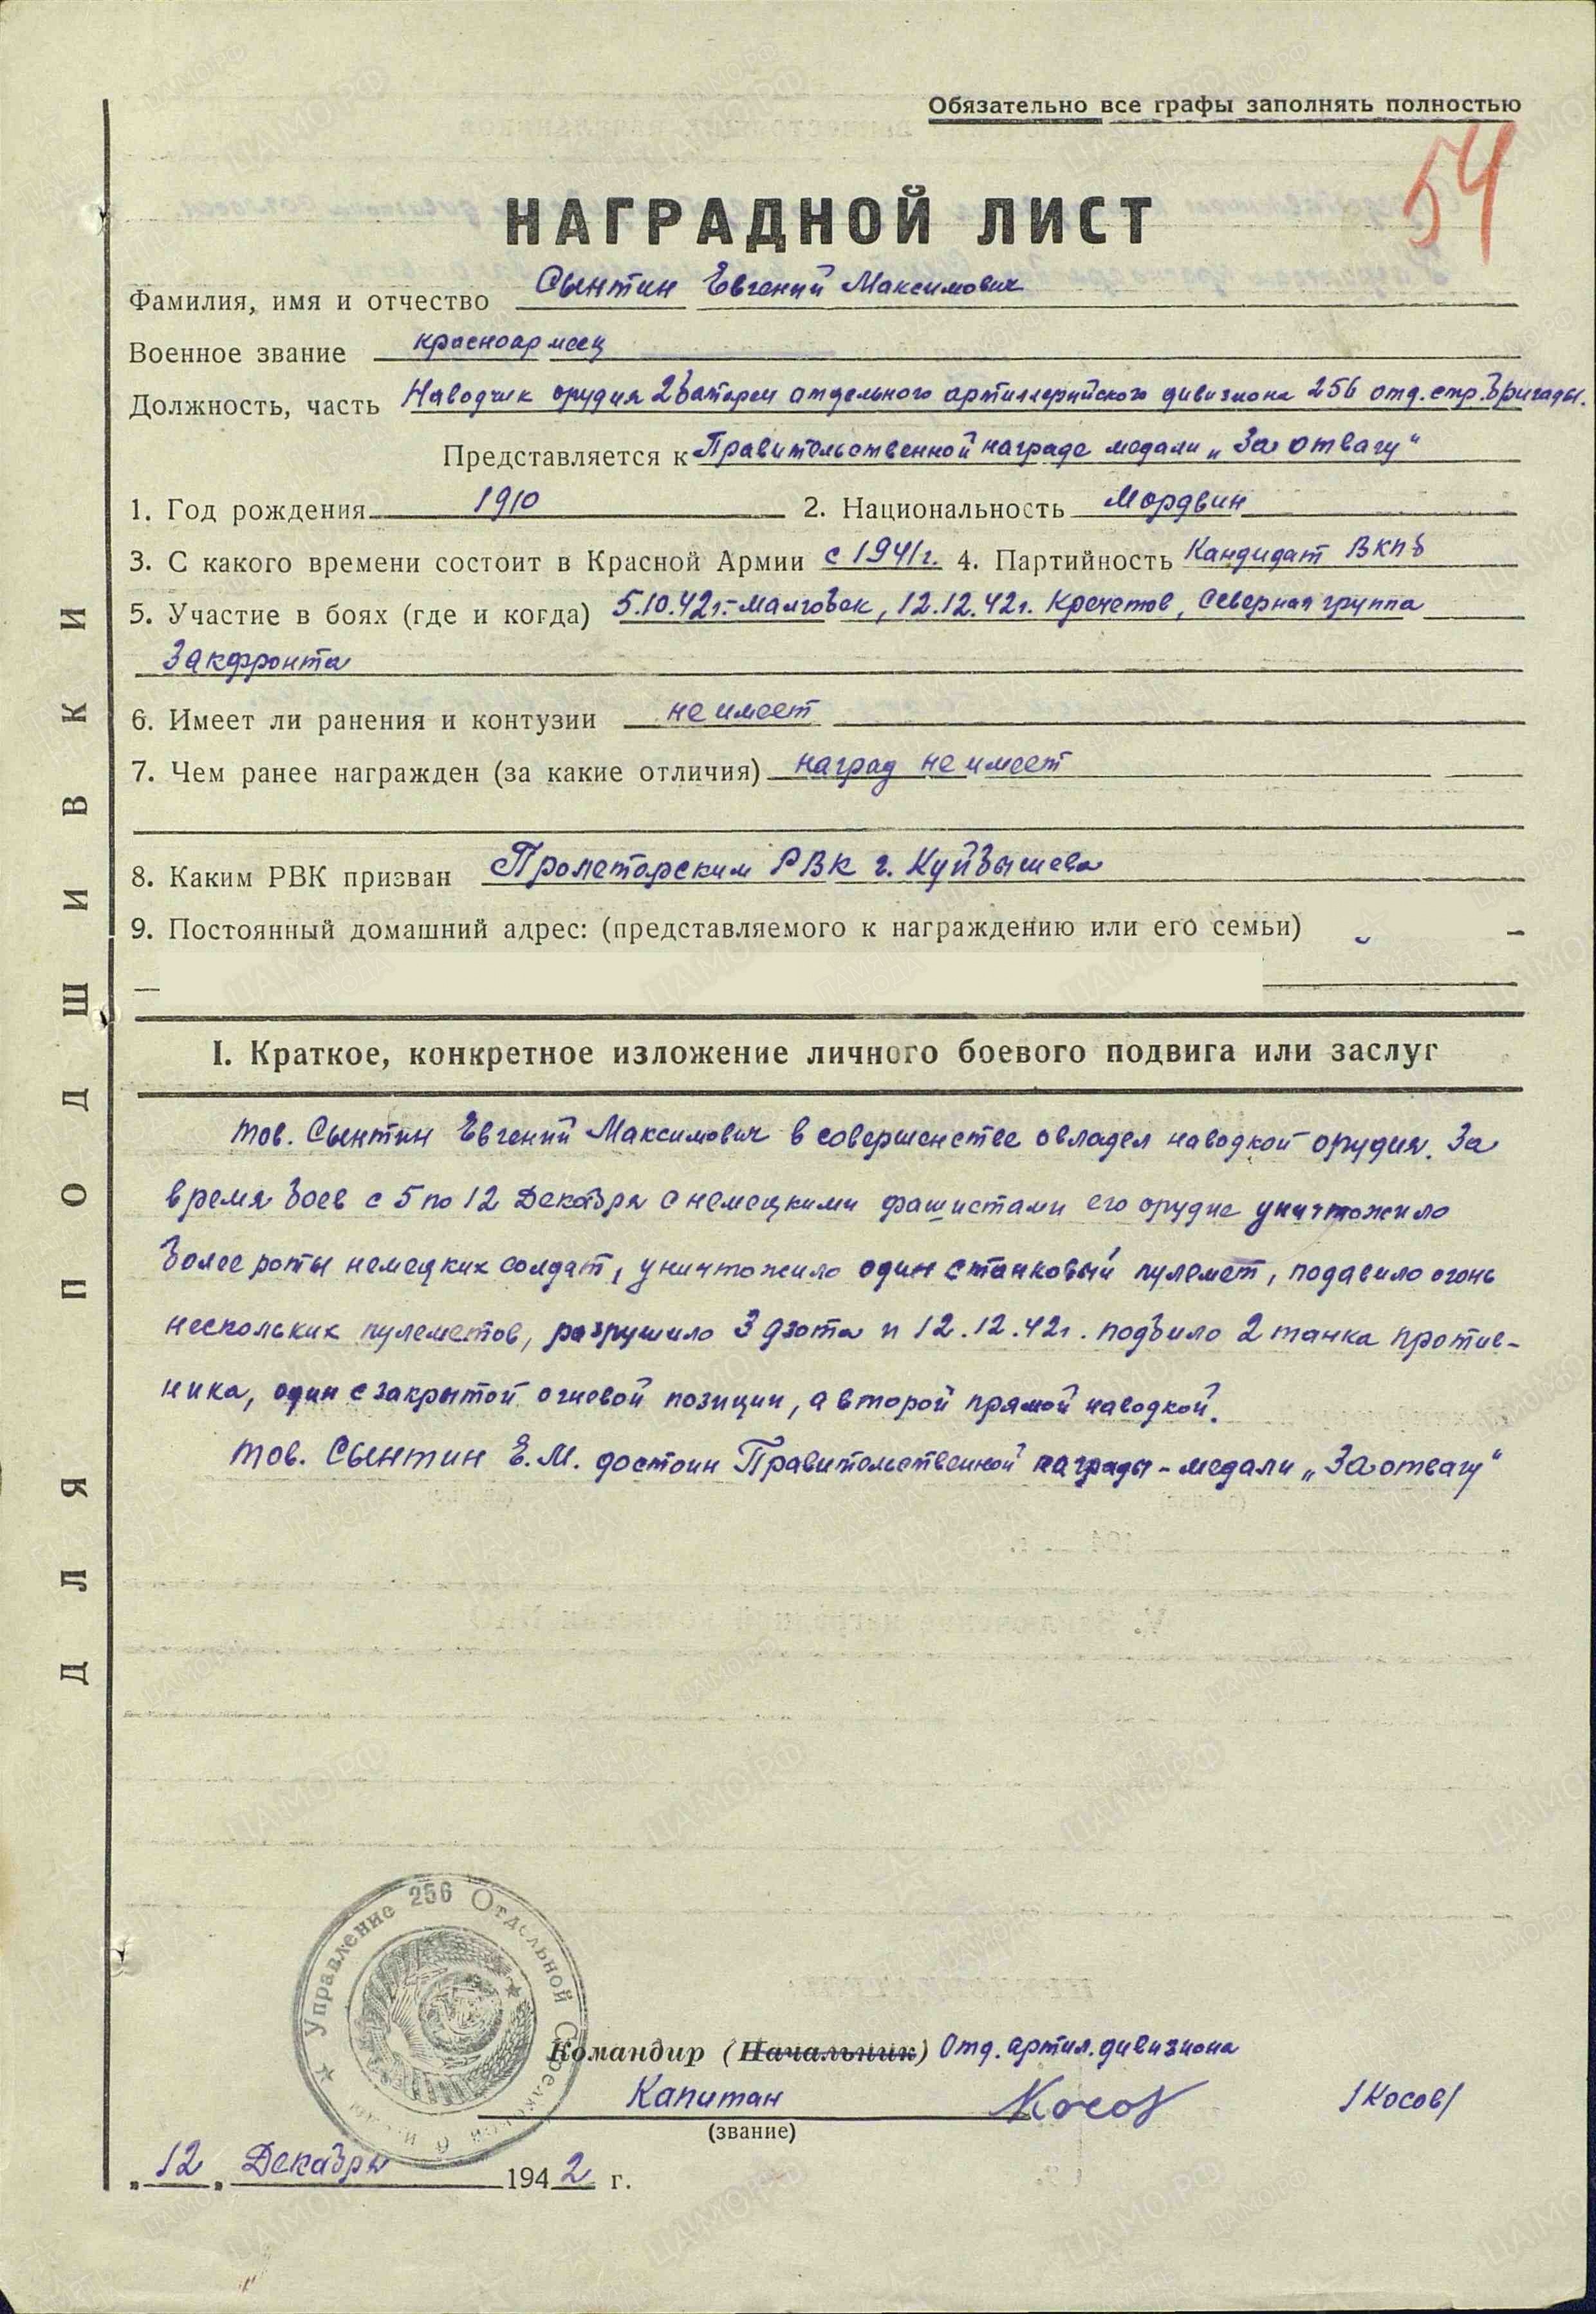 Обязательно все графы заполнять полностью
54
НАГРАДНОЙ ЛИСТ
Фамилия, имя и отчество Сынтин Евгений Максимович
Военное звание красноармеец
Должность, часть Наводчик орудия 2 батареи отдельного артиллерийского дивизиона 256 отд. стр. бригады.
Представляется к Правительственной награде медали „За отвагу“
1. Год рождения 1910 2. Национальность Мордвин
3. С какого времени состоит в Красной Армии с 1941г. 4. Партийность Кандидат ВКПб
5. Участие в боях (где и когда) 5.10.42г.-Малгобек, 12.12.42г. Кречетов, Северная группа
Закфронта
6. Имеет ли ранения и контузии не имеет
7. Чем ранее награжден (за какие отличия) наград не имеет
8. Каким РВК призван Пролетарским РВК г. Куйбышева
9. Постоянный домашний адрес: (представляемого к награждению или его семьи)
I. Краткое, конкретное изложение личного боевого подвига или заслуг
тов. Сынтин Евгений Максимович в совершенстве овладел наводкой орудия. За
время боев с 5 по 12 Декабря с немецкими фашистами его орудие уничтожило
более роты немецких солдат, уничтожило один станковый пулемет, подавило огонь
нескольких пулеметов, разрушило 3 дзота и 12.12.42г. подбило 2 танка против-
ника, один с закрытой огневой позиции, а второй прямой наводкой.
тов. Сынтин Е.М. достоин Правительственной награды - медали „За отвагу“
Управление 256 Отдельной Стрелковой
Командир (Начальник) Отд. артил. дивизиона
Капитан Косов /Косов/
(звание)
„12„ Декабря 1942 г.
ДЛЯ ПОДШИВКИ